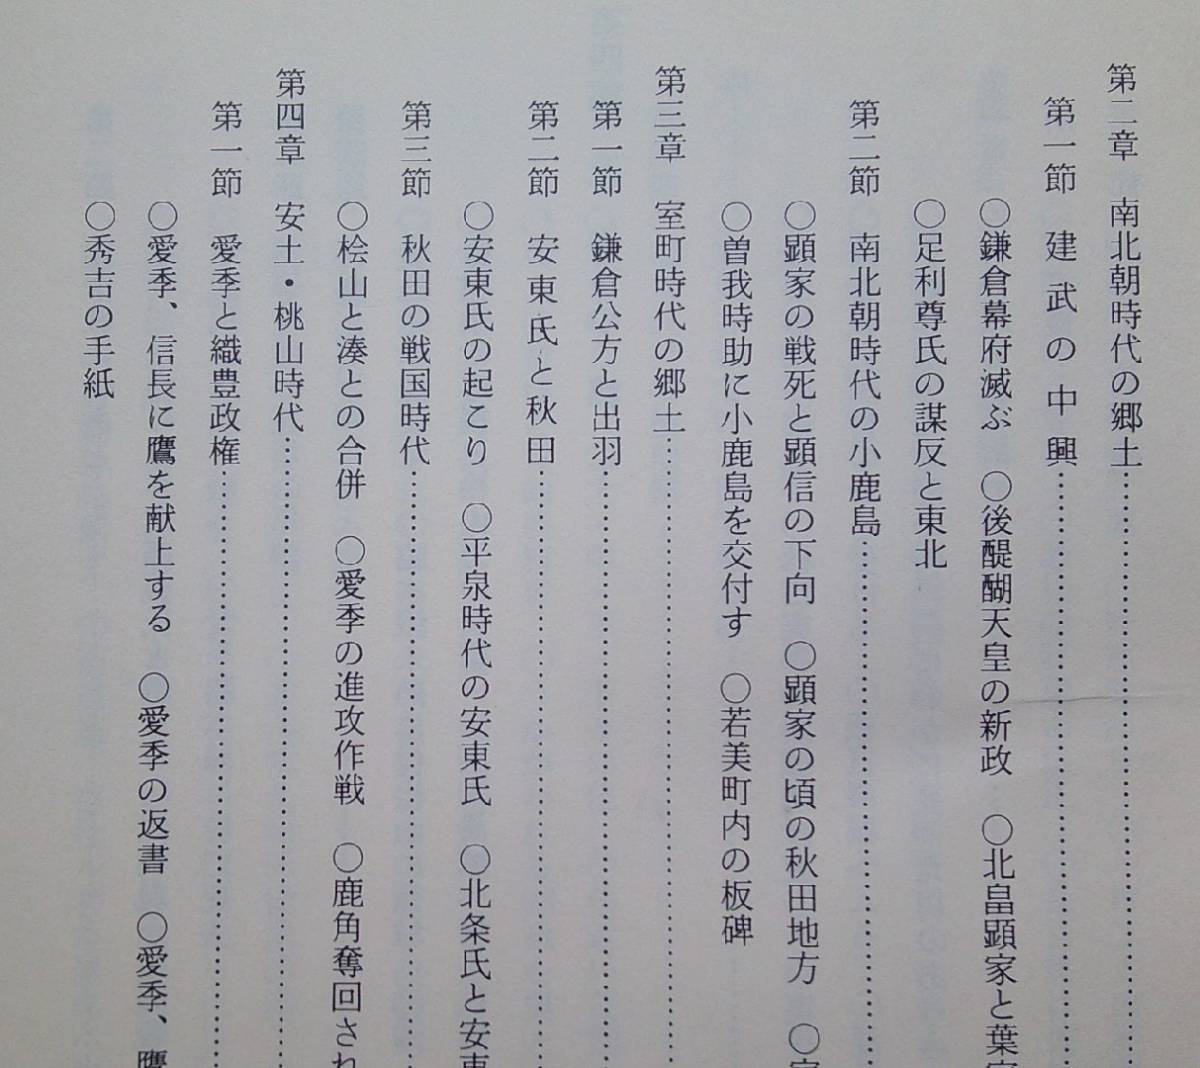 第二章　南北朝時代の郷土……………
第一節　建武の中興……………
〇鎌倉幕府滅ぶ　〇後醍醐天皇の新政　〇北畠顕家と葉室
〇足利尊氏の謀反と東北
第二節　南北朝時代の小鹿島……………
〇顕家の戦死と顕信の下向　〇顕家の頃の秋田地方　〇
〇曽我時助に小鹿島を交付す　〇若美町内の板碑
第三章　室町時代の郷土……………
第一節　鎌倉公方と出羽……………
第二節　安東氏と秋田……………
〇安東氏の起こり　〇平泉時代の安東氏　〇北条氏と安東
第三節　秋田の戦国時代……………
〇桧山と湊との合併　〇愛季の進攻作戦　〇鹿角奪回され
第四章　安土・桃山時代……………
第一節　愛季と織豊政権……………
〇愛季、信長に鷹を献上する　〇愛季の返書　〇愛季、鷹
〇秀吉の手紙